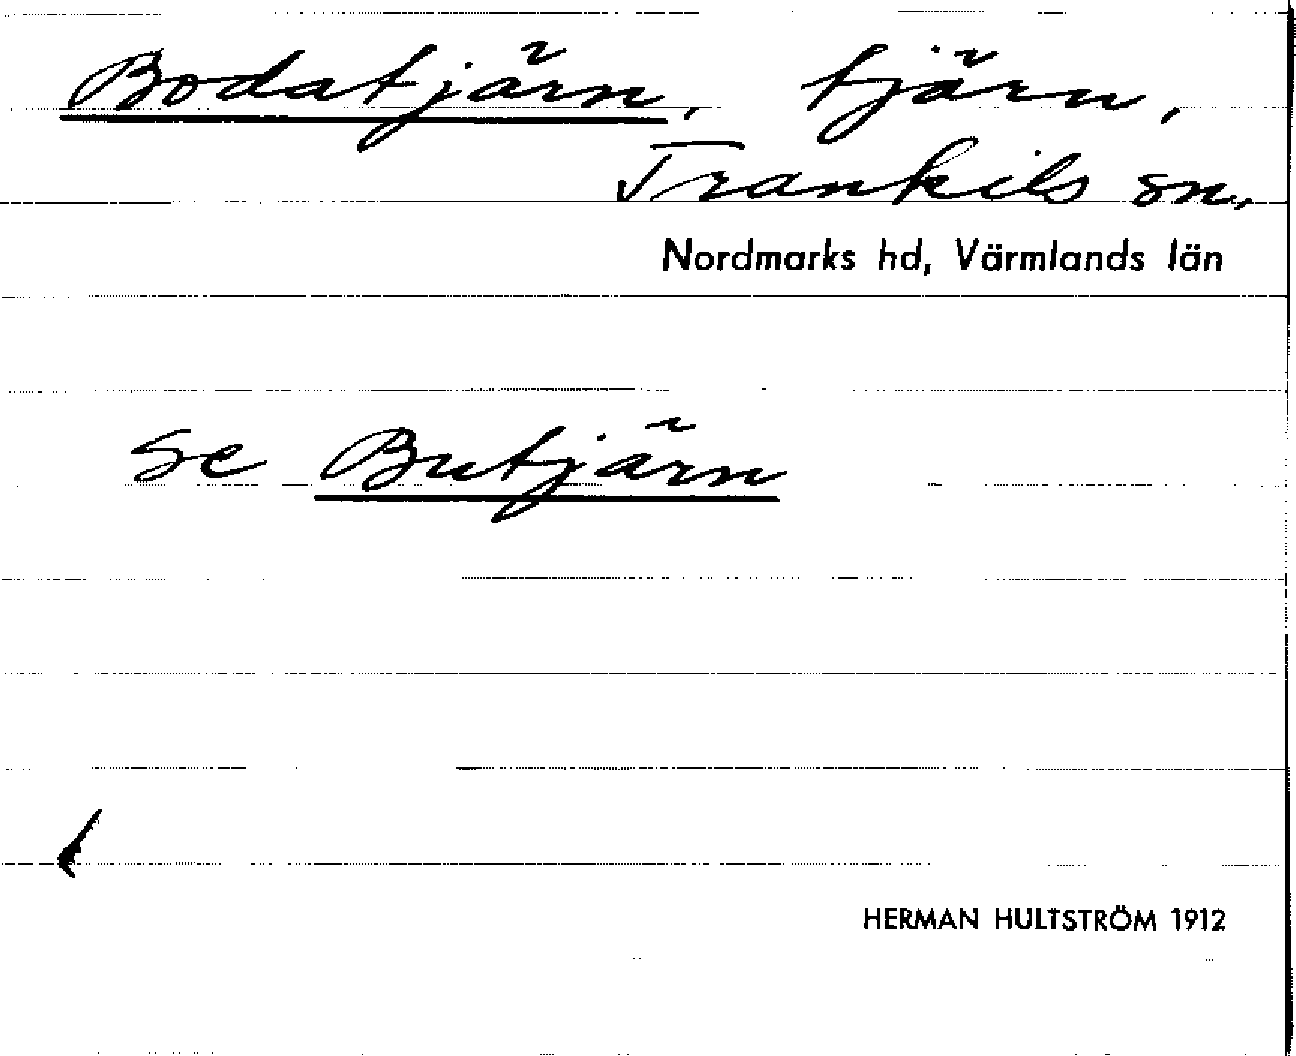 Bodatjärn, tjärn,
Trankils sn.
Nordmarks hd, Värmlands län
se Butjärn
HERMAN HULTSTRÖM 1912